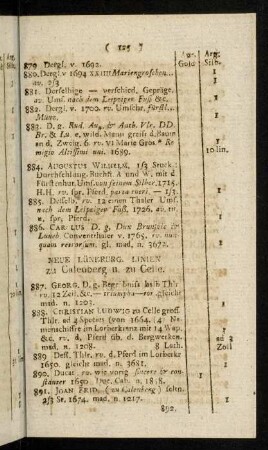 ( 125 )
Aur. Arg:
Gold Silb.
879 Dergl. v. 1692.
880. Dergl. v 1694 XXIIII Mariengroschen...
av. 2/3
881. Derselbige — verschied. Gepräge.
av. Ums. nach dem Leipziger Fuß &c.
882. Dergl. v. 1700. rv. Umschr. fürstl...
Münz.
883. D. g. Rud. Aug. & Anth. Vlr. DD.
Br. & Lu. e. wild. Mann greift d. Baum
an d. Zweige. 6. rv. VI Marie Gros. Re
migio Altissimi uni. 1689. 10 lin.
884. AUGUSTUS WILHELM, 1/3 Stück.
Durchschlang. Buchst. A und W. mit d
Fürstenhut. Ums. von feinem Silber. 1715.
H.H. rv. spr. Pferd. parta tueri. — 1/3.
885. Desselb. rv. 12 einen Thaler Ums.
nach dem Leipziger Fuß. 1726. av.
e. spr. Pferd
886. CAROLUS D. g. Dux Brunsvic &
Luneb Conventsthaler v. 1765. rv. nun
quam retrorsum. gl. mad. n. 3672.
NEUE LÜNEBURG. LINIEN
zu Calenberg u. zu Celle.
887. GEORG. D. g. Regr. Brustb. halb Thlr
rv. 12 Zeil. &c.— triumpho — rer. gleicht
mad. n. 1203.
888. CHRISTIAN LUDWIG zu Celle gross.
Thlr. ad 4 Species (von 1664. 4) Na
menschiffre im Lorberkranz mit 14 Wap.
&c. rv. d. Pferd üb d. Bergwerken.
mad. n. 1208. 8 Loth.
889 Dess. Thlr. rv. d. Pferd im Lorberkr
1650. gleicht mad. n. 3681.
890. Ducat rv. wie vorig. sincere & con
stanter 1650 Duc. Cab. n. 1818.
891. JOAN FRID. (zu Calenberg) seltn.
2/3 St. 1674. mad. n. 1217.
892.